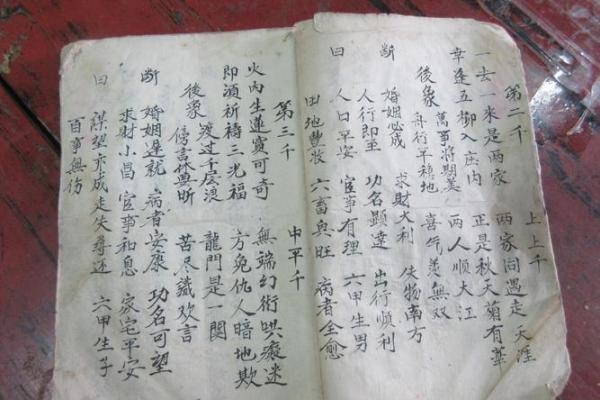 第二千 上上千
一去一来是两家 两家同遇走天涯
幸逢五柳入庄内 正是秋天菊有華
後象 萬事將期美 两人順大江
舟行平穏地 喜气羙無双
断 婚姻必成 求財大利 失物南方
人行即至 功名顕達 出行順利
曰 人口平安 官事有理 六甲生男
田地豐收 六畜與旺 病者全愈
第三千 中平千
火内生蓮實可奇 無端幻術哄癡迷
即須祈禱三光福 方免仇人暗地欺
後象 渡过千层浪 龍門是一関
傍言休典听 苦尽識欢言
断 婚姻遅就 病者安康 功名可望
求財小昌 官事和息 家宅平安
曰 謀望亦成 走失尋还 六甲生子
百事無伤